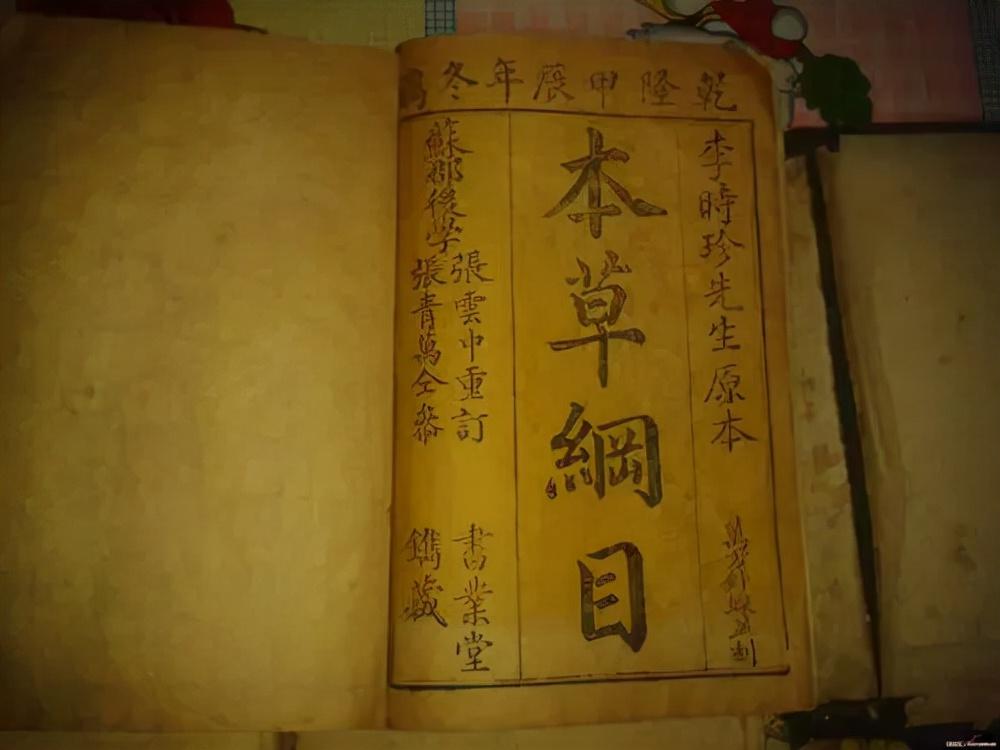 乾隆甲辰年冬
李時珍先生原本
本草綱目
蘇郡後学
張雲中重訂
張青萬仝叅
書業堂
鐫藏